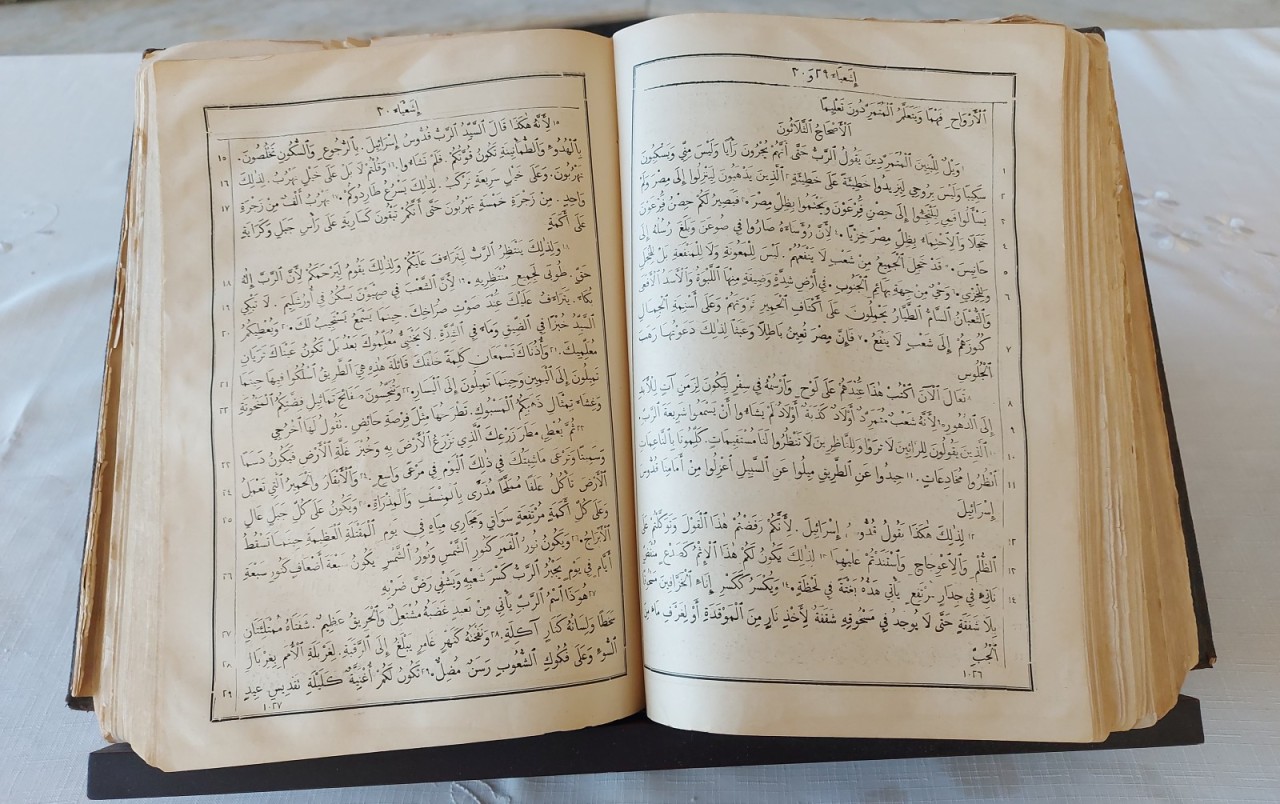 إِشَعْيَاءَ ٢٩ وَ ٣٠
ٱلْأَرْوَاحِ فَهْمًا وَيَتَعَلَّمُ ٱلْمُتَمَرِّدُونَ تَعْلِيمًا
ٱلْأَصْحَاحُ ٱلثَّلَاثُونَ
١ وَيْلٌ لِلْبَنِينَ ٱلْمُتَمَرِّدِينَ يَقُولُ ٱلرَّبُّ حَتَّى أَنَّهُمْ يُجْرُونَ رَأْيًا وَلَيْسَ مِنِّي وَيَسْكُبُونَ
سَكِيبًا وَلَيْسَ بِرُوحِي لِيَزِيدُوا خَطِيئَةً عَلَى خَطِيئَةٍ. ٢ ٱلَّذِينَ يَذْهَبُونَ لِيَنْزِلُوا إِلَى مِصْرَ وَلَمْ
يَسْأَلُوا فَمِي لِيَلْتَجِئُوا إِلَى حِصْنِ فِرْعَوْنَ وَيَحْتَمُوا بِظِلِّ مِصْرَ. ٣ فَيَصِيرُ لَكُمْ حِصْنُ فِرْعَوْنَ
خَجَلًا وَٱلِٱحْتِمَاءُ بِظِلِّ مِصْرَ خِزْيًا. ٤ لِأَنَّ رُؤَسَاءَهُ صَارُوا فِي صُوعَنَ وَبَلَغَ رُسُلُهُ إِلَى
حَانِيسَ. ٥ قَدْ خَجِلَ ٱلْجَمِيعُ مِنْ شَعْبٍ لَا يَنْفَعُهُمْ. لَيْسَ لِلْمَعُونَةِ وَلَا لِلْمَنْفَعَةِ بَلْ لِلْخَجَلِ
وَلِلْخِزْيِ. ٦ وَحْيٌ مِنْ جِهَةِ بَهَائِمِ ٱلْجَنُوبِ. فِي أَرْضِ شِدَّةٍ وَضِيقَةٍ مِنْهَا ٱللَّبْوَةُ وَٱلْأَسَدُ ٱلْأَفْعَى
وَٱلثُّعْبَانُ ٱلسَّامُّ ٱلطَّيَّارُ يَحْمِلُونَ عَلَى أَكْتَافِ ٱلْحَمِيرِ ثَرْوَتَهُمْ وَعَلَى أَسْنِمَةِ ٱلْجِمَالِ
كُنُوزَهُمْ إِلَى شَعْبٍ لَا يَنْفَعُ. ٧ فَإِنَّ مِصْرَ تُعِينُ بَاطِلًا وَعَبَثًا لِذٰلِكَ دَعَوْتُهَا رَهَبَ
ٱلْجُلُوسِ
٨ تَعَالَ ٱلْآنَ ٱكْتُبْ هٰذَا عِنْدَهُمْ عَلَى لَوْحٍ وَٱرْسُمْهُ فِي سِفْرٍ لِيَكُونَ لِزَمَنٍ آتٍ لِلْأَبَدِ
إِلَى ٱلدُّهُورِ. ٩ لِأَنَّهُ شَعْبٌ مُتَمَرِّدٌ أَوْلَادٌ كَذَبَةٌ أَوْلَادٌ لَمْ يَشَاءُوا أَنْ يَسْمَعُوا شَرِيعَةَ ٱلرَّبِّ.
١٠ ٱلَّذِينَ يَقُولُونَ لِلرَّائِينَ لَا تَرَوْا وَلِلنَّاظِرِينَ لَا تَنْظُرُوا لَنَا مُسْتَقِيمَاتٍ. كَلِّمُونَا بِٱلنَّاعِمَاتِ
ٱنْظُرُوا مُخَادِعَاتٍ. ١١ حِيدُوا عَنِ ٱلطَّرِيقِ مِيلُوا عَنِ ٱلسَّبِيلِ ٱعْزِلُوا مِنْ أَمَامِنَا قُدُّوسَ
إِسْرَائِيلَ
١٢ لِذٰلِكَ هٰكَذَا يَقُولُ قُدُّوسُ إِسْرَائِيلَ. لِأَنَّكُمْ رَفَضْتُمْ هٰذَا ٱلْقَوْلَ وَتَوَكَّلْتُمْ عَلَى
ٱلظُّلْمِ وَٱلِٱعْوِجَاجِ وَٱسْتَنَدْتُمْ عَلَيْهِمَا ١٣ لِذٰلِكَ يَكُونُ لَكُمْ هٰذَا ٱلْإِثْمُ كَصَدْعٍ مُنْقَضٍّ
نَاتِئٍ فِي جِدَارٍ مُرْتَفِعٍ يَأْتِي هَدُّهُ بَغْتَةً فِي لَحْظَةٍ. ١٤ وَيُكْسَرُ كَكَسْرِ إِنَاءِ ٱلْخَزَّافِينَ مَسْحُوقًا
بِلَا شَفَقَةٍ حَتَّى لَا يُوجَدُ فِي مَسْحُوقِهِ شَقَفَةٌ لِأَخْذِ نَارٍ مِنَ ٱلْمَوْقَدَةِ أَوْ لِغَرْفِ مَاءٍ مِنَ
ٱلْجُبِّ
١٠٢٦
إِشَعْيَاءَ ٣٠
١٥ لِأَنَّهُ هٰكَذَا قَالَ ٱلسَّيِّدُ ٱلرَّبُّ قُدُّوسُ إِسْرَائِيلَ. بِٱلرُّجُوعِ وَٱلسُّكُونِ تَخْلُصُونَ.
بِٱلْهُدُوءِ وَٱلطُّمَأْنِينَةِ تَكُونُ قُوَّتُكُمْ. فَلَمْ تَشَاءُوا. ١٦ وَقُلْتُمْ لَا بَلْ عَلَى خَيْلٍ نَهْرُبُ. لِذٰلِكَ
تَهْرُبُونَ. وَعَلَى خَيْلٍ سَرِيعَةٍ نَرْكَبُ. لِذٰلِكَ يُسْرِعُ طَارِدُوكُمْ. ١٧ يَهْرُبُ أَلْفٌ مِنْ زَجْرَةِ
وَاحِدٍ. مِنْ زَجْرَةِ خَمْسَةٍ تَهْرُبُونَ حَتَّى أَنَّكُمْ تَبْقَوْنَ كَسَارِيَةٍ عَلَى رَأْسِ جَبَلٍ وَكَرَايَةٍ
عَلَى أَكَمَةٍ
١٨ وَلِذٰلِكَ يَنْتَظِرُ ٱلرَّبُّ لِيَتَرَاءَفَ عَلَيْكُمْ وَلِذٰلِكَ يَقُومُ لِيَرْحَمَكُمْ لِأَنَّ ٱلرَّبَّ إِلٰهُ
حَقٍّ. طُوبَى لِجَمِيعِ مُنْتَظِرِيهِ. ١٩ لِأَنَّ ٱلشَّعْبَ فِي صِهْيَوْنَ يَسْكُنُ فِي أُورُشَلِيمَ. لَا تَبْكِي
بُكَاءً. يَتَرَاءَفُ عَلَيْكَ عِنْدَ صَوْتِ صُرَاخِكَ. حِينَمَا يَسْمَعُ يَسْتَجِيبُ لَكَ. ٢٠ وَيُعْطِيكُمُ
ٱلسَّيِّدُ خُبْزًا فِي ٱلضِّيقِ وَمَاءً فِي ٱلشِّدَّةِ. لَا يَخْتَبِئُ مُعَلِّمُوكَ بَعْدُ بَلْ تَكُونُ عَيْنَاكَ تَرَيَانِ
مُعَلِّمِيكَ. ٢١ وَأُذُنَاكَ تَسْمَعَانِ كَلِمَةً خَلْفَكَ قَائِلَةً هٰذِهِ هِيَ ٱلطَّرِيقُ ٱسْلُكُوا فِيهَا حِينَمَا
تَمِيلُونَ إِلَى ٱلْيَمِينِ وَحِينَمَا تَمِيلُونَ إِلَى ٱلْيَسَارِ. ٢٢ وَتُنَجِّسُونَ صَفَائِحَ تَمَاثِيلِ فِضَّتِكُمُ ٱلْمَنْحُوتَةِ
وَغِشَاءَ تِمْثَالِ ذَهَبِكُمُ ٱلْمَسْبُوكِ. تَطْرَحُهَا مِثْلَ فِرْصَةِ حَائِضٍ. تَقُولُ لَهَا ٱخْرُجِي
٢٣ ثُمَّ يُعْطِي مَطَرَ زَرْعِكَ ٱلَّذِي تَزْرَعُ ٱلْأَرْضَ بِهِ وَخُبْزَ غَلَّةِ ٱلْأَرْضِ فَيَكُونُ دَسَمًا
وَسَمِينًا وَتَرْعَى مَاشِيَتُكَ فِي ذٰلِكَ ٱلْيَوْمِ فِي مَرْعًى وَاسِعٍ. ٢٤ وَٱلْأَبْقَارُ وَٱلْحَمِيرُ ٱلَّتِي تَعْمَلُ
ٱلْأَرْضَ تَأْكُلُ عَلَفًا مُمَلَّحًا مُذَرَّى بِٱلْمِنْسَفِ وَٱلْمِذْرَاةِ. ٢٥ وَيَكُونُ عَلَى كُلِّ جَبَلٍ عَالٍ
وَعَلَى كُلِّ أَكَمَةٍ مُرْتَفِعَةٍ سَوَاقٍ وَمَجَارِي مِيَاهٍ فِي يَوْمِ ٱلْمَقْتَلَةِ ٱلْعَظِيمَةِ حِينَمَا تَسْقُطُ
ٱلْأَبْرَاجُ. ٢٦ وَيَكُونُ نُورُ ٱلْقَمَرِ كَنُورِ ٱلشَّمْسِ وَنُورُ ٱلشَّمْسِ يَكُونُ سَبْعَةَ أَضْعَافٍ كَنُورِ سَبْعَةِ
أَيَّامٍ فِي يَوْمٍ يَجْبُرُ ٱلرَّبُّ كَسْرَ شَعْبِهِ وَيَشْفِي رَضَّ ضَرْبِهِ
٢٧ هُوَذَا ٱسْمُ ٱلرَّبِّ يَأْتِي مِنْ بَعِيدٍ غَضَبُهُ مُشْتَعِلٌ وَٱلْحَرِيقُ عَظِيمٌ. شَفَتَاهُ مُمْتَلِئَتَانِ
سَخَطًا وَلِسَانُهُ كَنَارٍ آكِلَةٍ. ٢٨ وَنَفْخَتُهُ كَنَهْرٍ غَامِرٍ يَبْلُغُ إِلَى ٱلرَّقَبَةِ. لِغَرْبَلَةِ ٱلْأُمَمِ بِغُرْبَالِ
ٱلسُّوءِ وَعَلَى فُكُوكِ ٱلشُّعُوبِ رَسَنٌ مُضِلٌّ. ٢٩ تَكُونُ لَكُمْ أُغْنِيَّةٌ كَلَيْلَةِ تَقْدِيسِ عِيدٍ
١٠٢٧